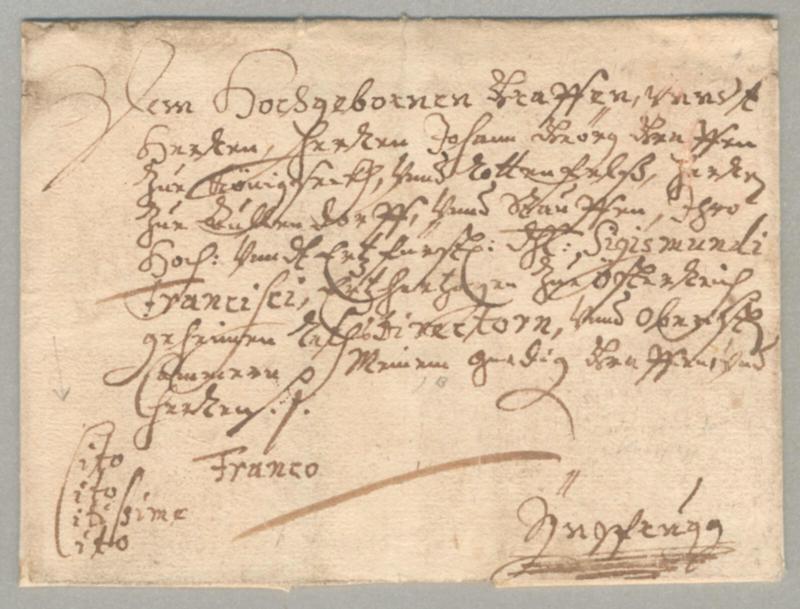 Dem Hochgebornen Graffen, vnndt
Herren, Herren Johann Georg Graffen
Zue Königseckh, vnnd Rottenfelß, Herren
Zue Aullendorff, vnnd Stauffen, Ihro
Hoch: vnndt Ertzfürstl: Dhl: Sigismundi
Francisci, Ertzhertzogen Zue Österreich
geheimen raths Directorn, vnnd Obersten
Cammerern Meinem gnedig Graffen, vnd
Herren.
Cito
Cito
Citissime
Cito
Franco
Ynsprugg